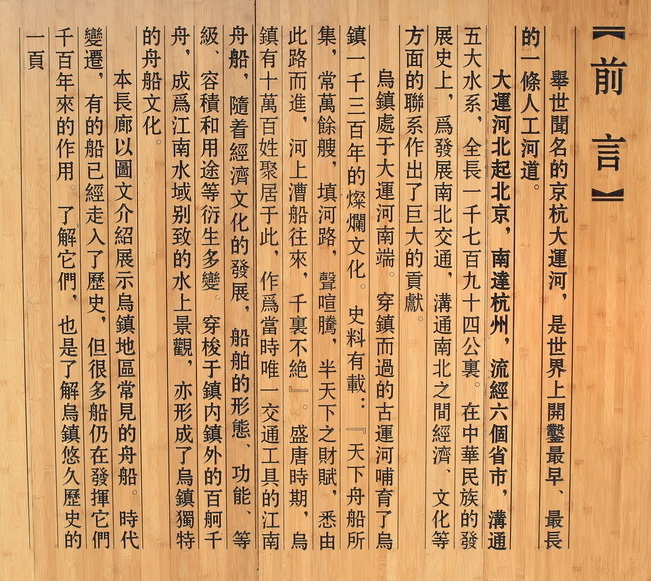 【前言】
舉世聞名的京杭大運河，是世界上開鑿最早、最長
的一條人工河道。
大運河北起北京，南達杭州，流經六個省市，溝通
五大水系，全長一千七百九十四公裏。在中華民族的發
展史上，爲發展南北交通，溝通南北之間經濟、文化等
方面的聯系作出了巨大的貢獻。
烏鎮處于大運河南端。穿鎮而過的古運河哺育了烏
鎮一千三百年的燦爛文化。史料有載：『天下舟船所
集，常萬餘艘，填河路，聲喧騰，半天下之財賦，悉由
此路而進，河上漕船往來，千裏不絶』。盛唐時期，烏
鎮有十萬百姓聚居于此，作爲當時唯一交通工具的江南
舟船，隨着經濟文化的發展，船舶的形態、功能、等
級、容積和用途等衍生多變。穿梭于鎮内鎮外的百舸千
舟，成爲江南水域别致的水上景觀，亦形成了烏鎮獨特
的舟船文化。
本長廊以圖文介紹展示烏鎮地區常見的舟船。時代
變遷，有的船已經走入了歷史，但很多船仍在發揮它們
千百年來的作用。了解它們，也是了解烏鎮悠久歷史的
一頁